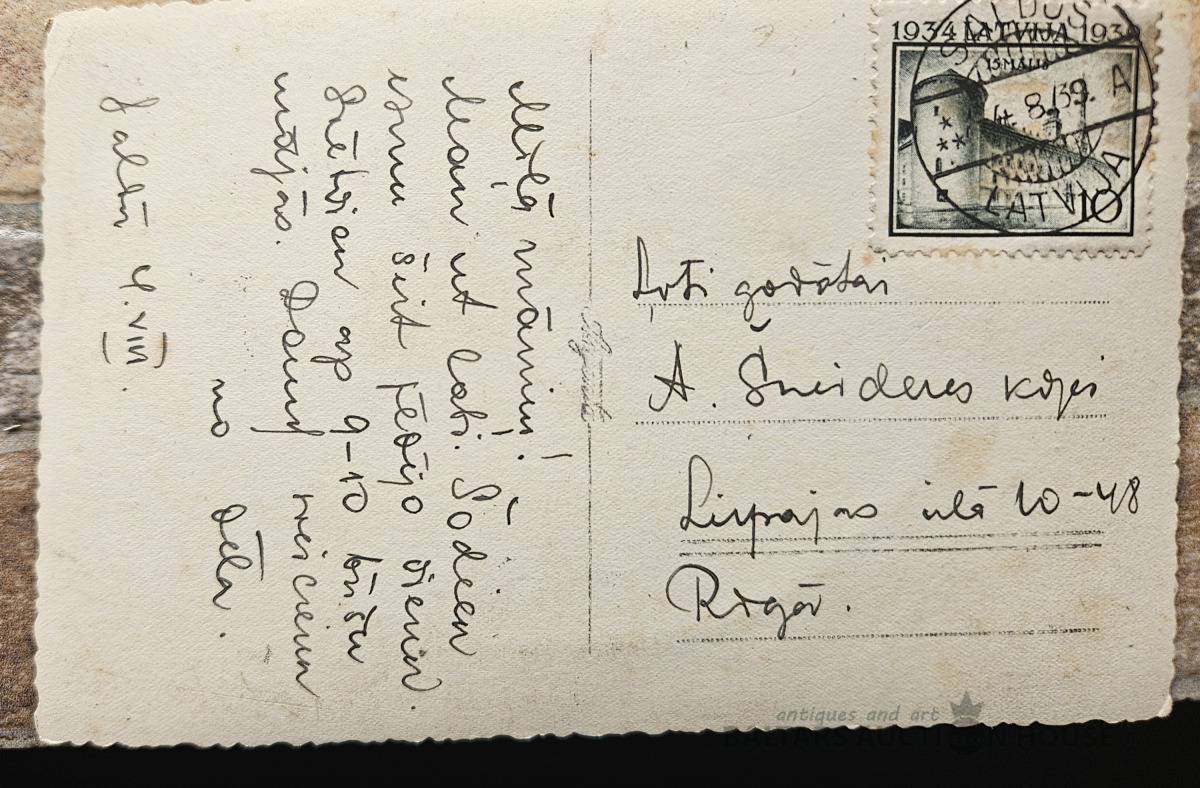 Mīļā māmiņ!
Man iet labi. Šodien
esmu šeit pēdējo dienu
Sētdien ap 9-10 būšu
mājās. Daudz sveicienu
no dēla.
Saldū 4.VIII.
1934 LATVIJA 1939
15 MAIJS
10
SALDUS
4. 8. 39. A
LATVIJA
Ļoti godātai
A. Šneideres kdzei
Liepajas ielā 10-48
Rīgā.
antiques and art
BALTARS AUCTION HOUSE